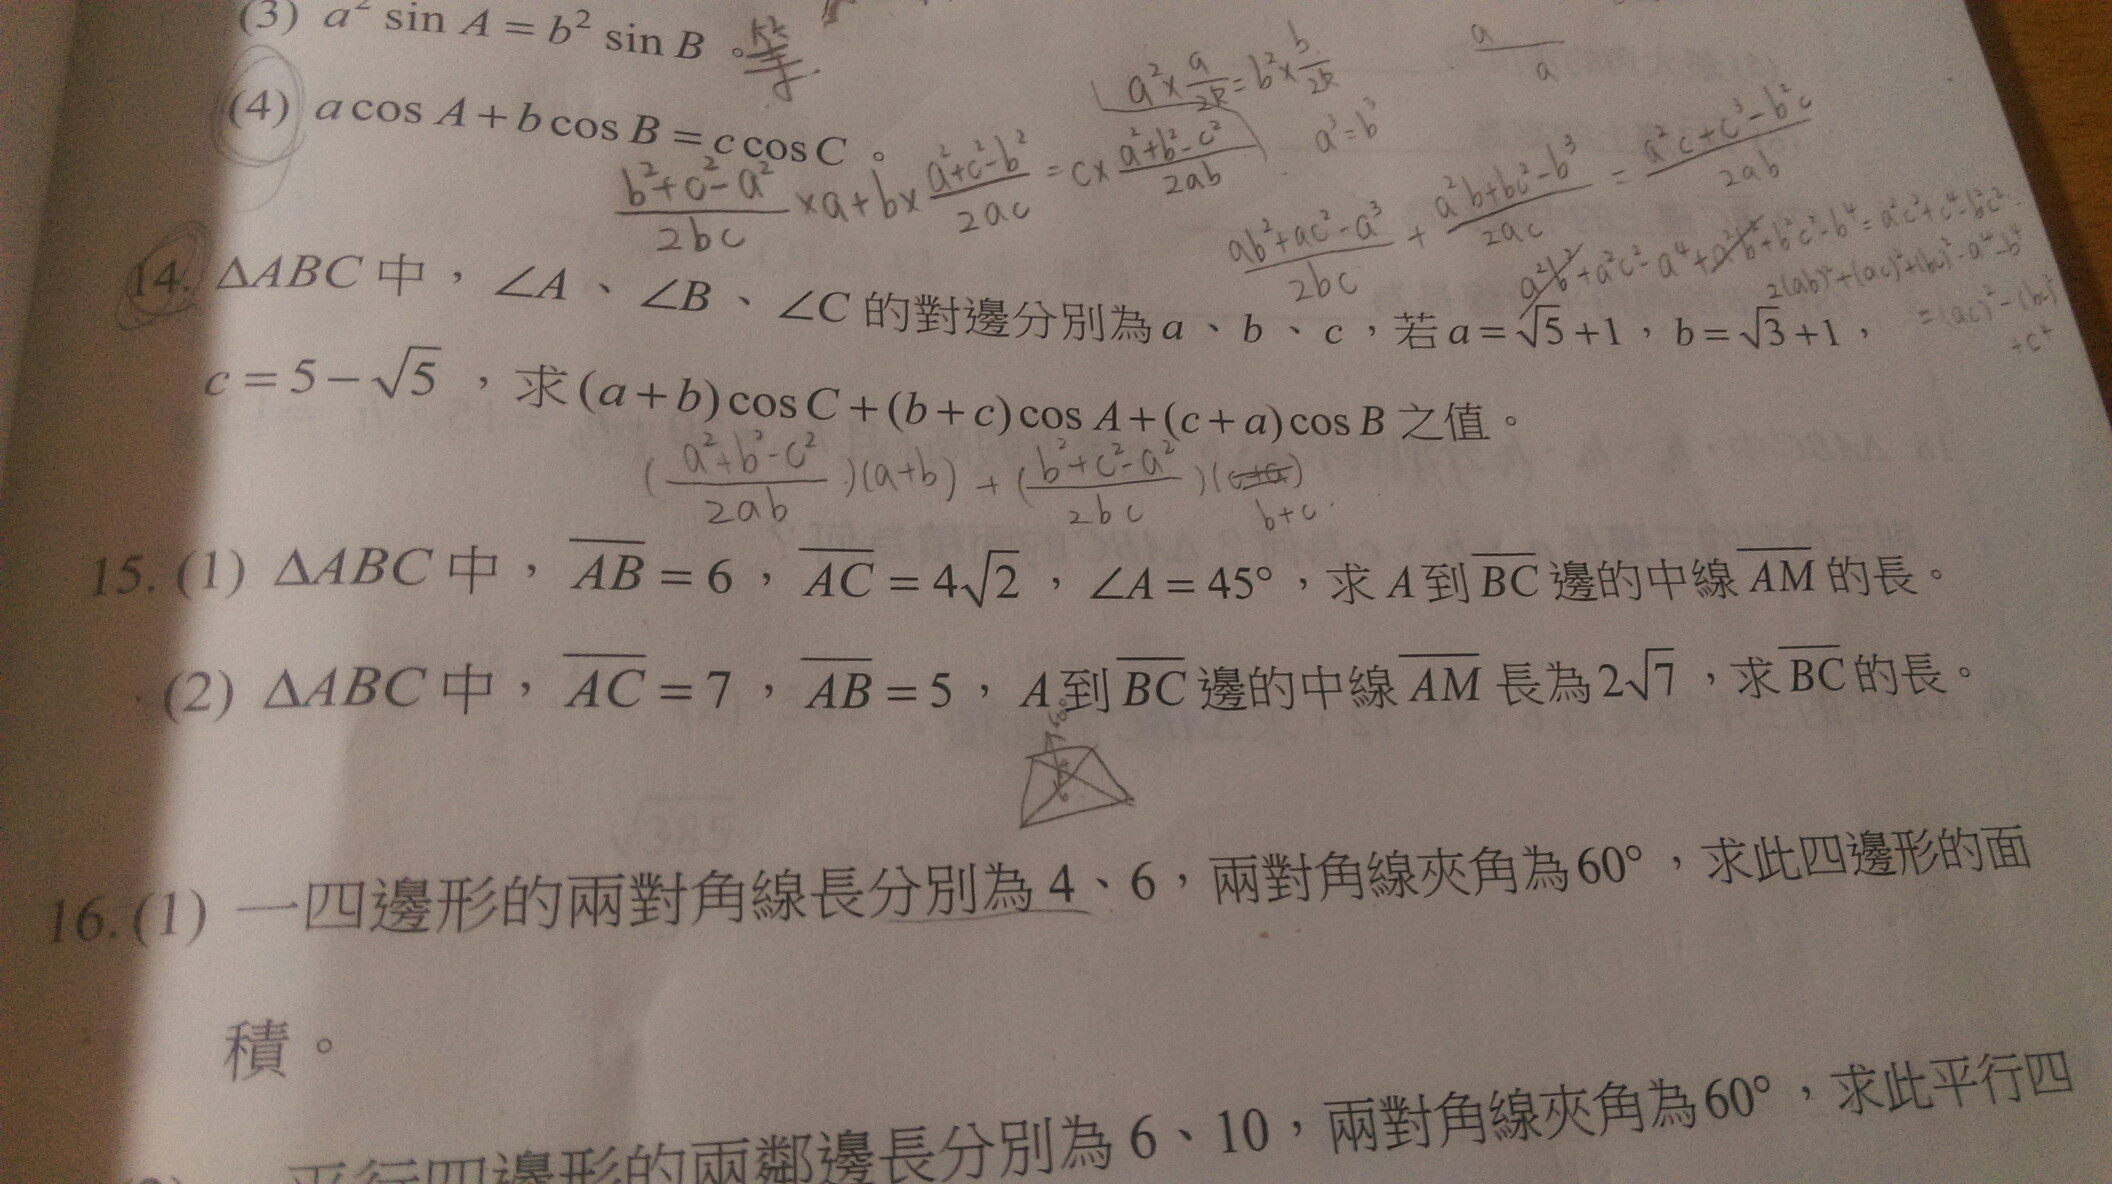 (3) a² sin A = b² sin B 。等
a
a
a² × a/2R = b² × b/2R
a³ = b³
(4) a cos A + b cos B = c cos C 。
(b²+c²-a²)/2bc × a + b × (a²+c²-b²)/2ac = c × (a²+b²-c²)/2ab
(ab²+ac²-a³)/2bc + (a²b+bc²-b³)/2ac = (a²c+c³-b²c)/2ab
a²b²+a²c²-a⁴+a²b²+b²c²-b⁴=a²c²+c⁴-b²c²
2(ab)²+(ac)²+(bc)²-a⁴-b⁴
=(ac)²-(bc)²
+c⁴
14. ΔABC 中，∠A、∠B、∠C 的對邊分別為 a、b、c，若 a=√5+1，b=√3+1，
c=5-√5，求 (a+b)cosC+(b+c)cosA+(c+a)cosB 之值。
((a²+b²-c²)/2ab)(a+b) + ((b²+c²-a²)/2bc)(c+a)
b+c
15. (1) ΔABC 中，AB=6，AC=4√2，∠A=45°，求 A 到 BC 邊的中線 AM 的長。
(2) ΔABC 中，AC=7，AB=5，A 到 BC 邊的中線 AM 長為 2√7，求 BC 的長。
16. (1) 一四邊形的兩對角線長分別為 4、6，兩對角線夾角為 60°，求此四邊形的面
積。
平行四邊形的兩鄰邊長分別為 6、10，兩對角線夾角為 60°，求此平行四